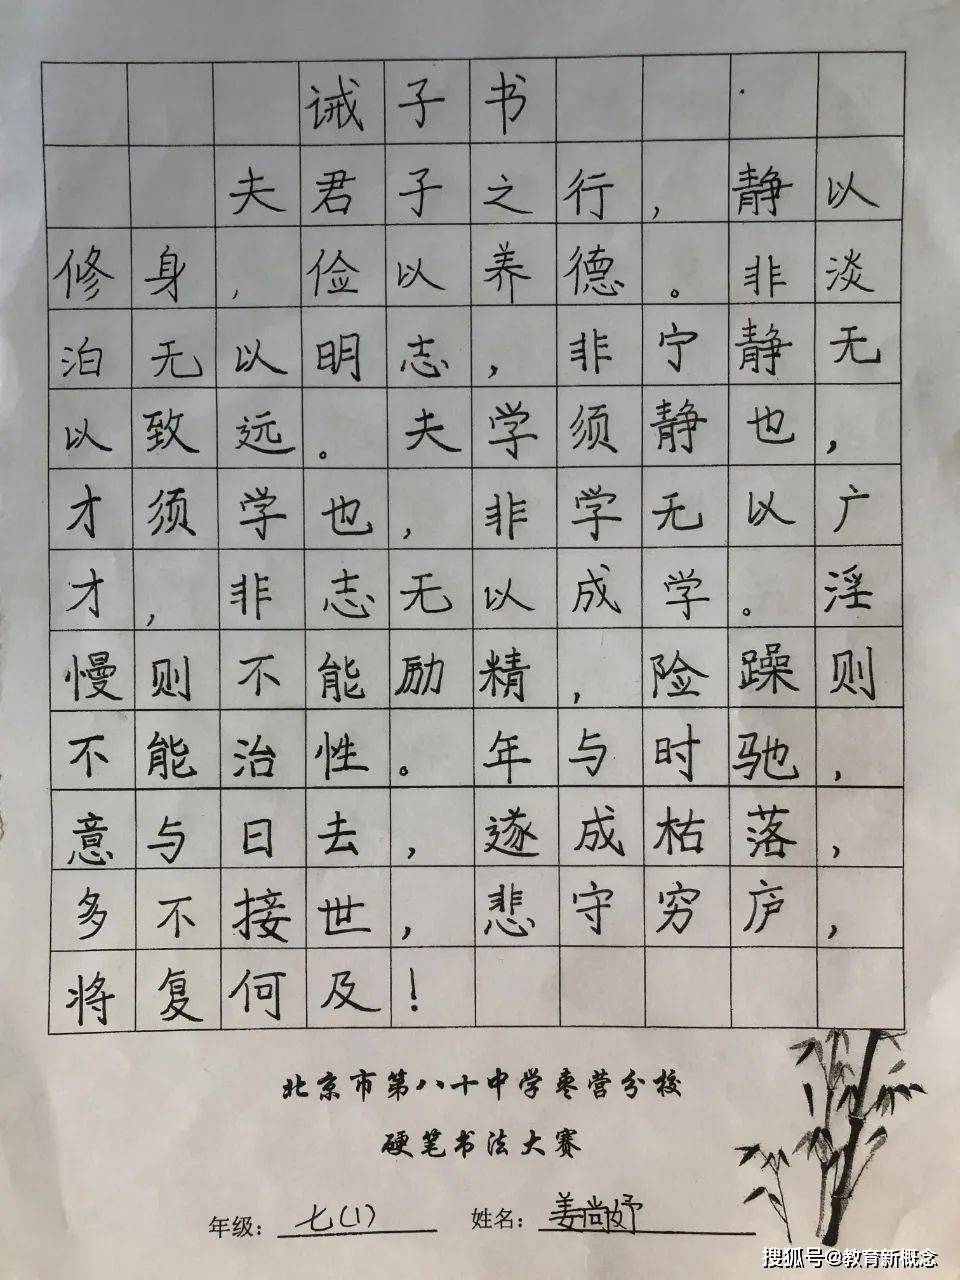 诫子书
夫君子之行，静以
修身，俭以养德。非淡
泊无以明志，非宁静无
以致远。夫学须静也，
才须学也，非学无以广
才，非志无以成学。淫
慢则不能励精，险躁则
不能治性。年与时驰，
意与日去，遂成枯落，
多不接世，悲守穷庐，
将复何及！
北京市第八十中学枣营分校
硬笔书法大赛
年级：七(1) 姓名：姜尚妤
搜狐号@教育新概念